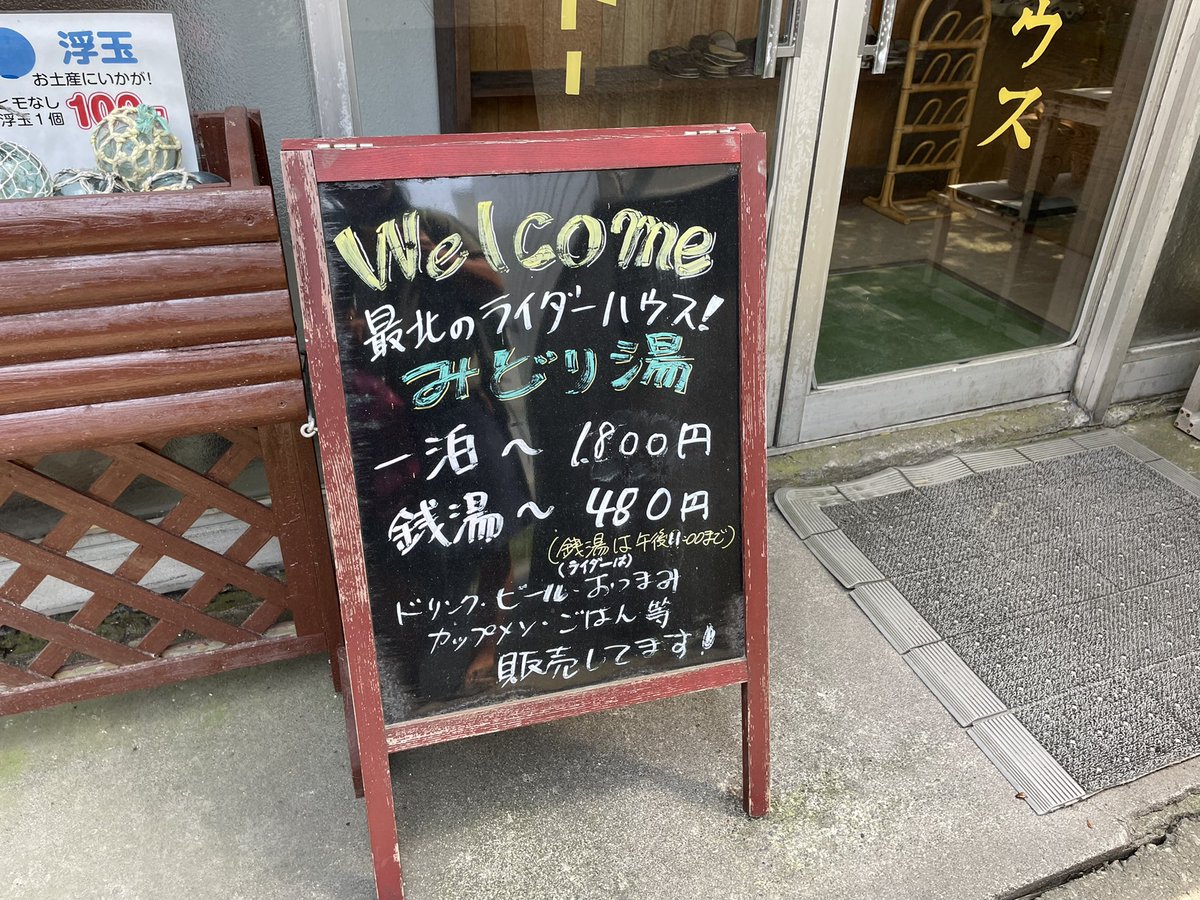 浮玉
お土産にいかが!
ヒモなし
浮玉1個
ウス
Welcome
最北のライダーハウス!
みどり湯
一泊〜 1.800円
銭湯〜 480円
(銭湯は午後11:00まで)
(ライダーは)
ドリンク・ビール・おつまみ
カップメン・ごはん等
販売してます!